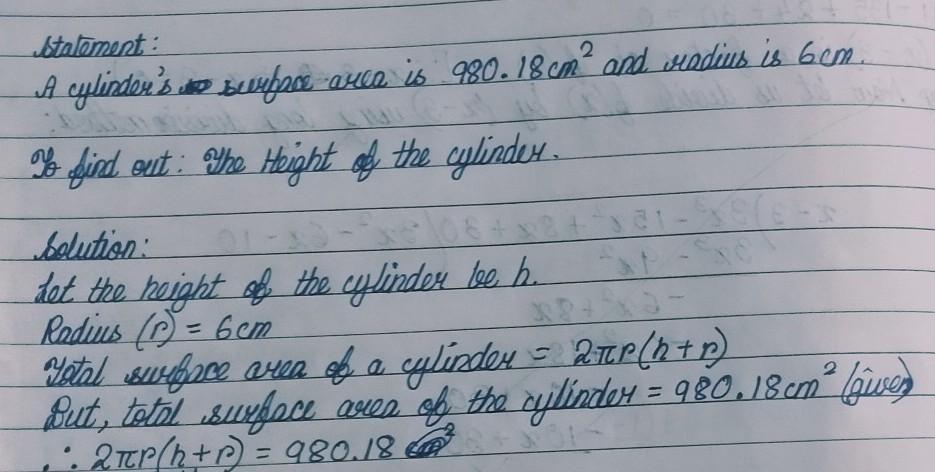 Statement:
A cylinder's surface area is 980.18cm² and radius is 6cm.
To find out: The Height of the cylinder.
Solution:
Let the height of the cylinder be h.
Radius (r) = 6cm
Total surface area of a cylinder = 2πr(h+r)
But, total surface area of the cylinder = 980.18cm² (given)
∴ 2πr(h+r) = 980.18